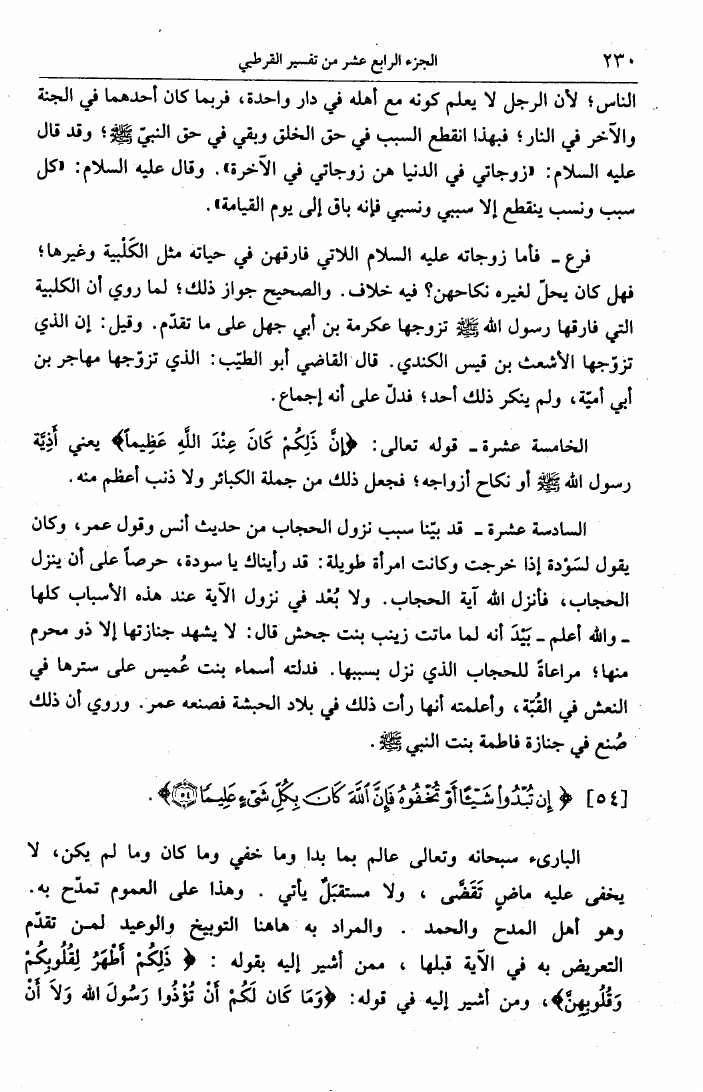 ٢٣٠ الجزء الرابع عشر من تفسير القرطبي
الناس؛ لأن الرجل لا يعلم كونه مع أهله في دار واحدة، فربما كان أحدهما في الجنة
والآخر في النار؛ فبهذا انقطع السبب في حق الخلق وبقي في حق النبيّ ﷺ؛ وقد قال
عليه السلام: «زوجاتي في الدنيا هن زوجاتي في الآخرة». وقال عليه السلام: «كل
سبب ونسب ينقطع إلا سببي ونسبي فإنه باق إلى يوم القيامة».
فرع ـ فأما زوجاته عليه السلام اللاتي فارقهن في حياته مثل الكَلْبية وغيرها؛
فهل كان يحلّ لغيره نكاحهن؟ فيه خلاف. والصحيح جواز ذلك؛ لما روي أن الكلبية
التي فارقها رسول الله ﷺ تزوجها عكرمة بن أبي جهل على ما تقدّم. وقيل: إن الذي
تزوّجها الأشعث بن قيس الكندي. قال القاضي أبو الطيّب: الذي تزوّجها مهاجر بن
أبي أميّة، ولم ينكر ذلك أحد؛ فدلّ على أنه إجماع.
الخامسة عشرة ـ قوله تعالى: ﴿إِنَّ ذَلِكُمْ كَانَ عِنْدَ اللَّهِ عَظِيماً﴾ يعني أَذِيّة
رسول الله ﷺ أو نكاح أزواجه؛ فجعل ذلك من جملة الكبائر ولا ذنب أعظم منه.
السادسة عشرة ـ قد بيّنا سبب نزول الحجاب من حديث أنس وقول عمر، وكان
يقول لسَوْدة إذا خرجت وكانت امرأة طويلة: قد رأيناك يا سودة، حرصاً على أن ينزل
الحجاب، فأنزل الله آية الحجاب. ولا بُعْد في نزول الآية عند هذه الأسباب كلها
ـ والله أعلم ـ بَيْدَ أنه لما ماتت زينب بنت جحش قال: لا يشهد جنازتها إلا ذو محرم
منها؛ مراعاةً للحجاب الذي نزل بسببها. فدلته أسماء بنت عُميس على سترها في
النعش في القُبّة، وأعلمته أنها رأت ذلك في بلاد الحبشة فصنعه عمر. وروي أن ذلك
صُنع في جنازة فاطمة بنت النبي ﷺ.
[٥٤] ﴿إِن تُبْدُوا۟ شَيْـًٔا أَوْ تُخْفُوهُ فَإِنَّ ٱللَّهَ كَانَ بِكُلِّ شَىْءٍ عَلِيمًا ٥٤﴾.
البارىء سبحانه وتعالى عالم بما بدا وما خفي وما كان وما لم يكن، لا
يخفى عليه ماضٍ تَقَضَّى ، ولا مستقبَلٌ يأتي . وهذا على العموم تمدّح به.
وهو أهل المدح والحمد . والمراد به هاهنا التوبيخ والوعيد لمن تقدّم
التعريض به في الآية قبلها ، ممن أشير إليه بقوله : ﴿ ذَلِكُمْ أَطْهَرُ لِقُلُوبِكُمْ
وَقُلُوبِهِنَّ﴾، ومن أشير إليه في قوله: ﴿وَمَا كَان لَكُمْ أَنْ تُؤْذُوا رَسُولَ الله وَلاَ أَنْ